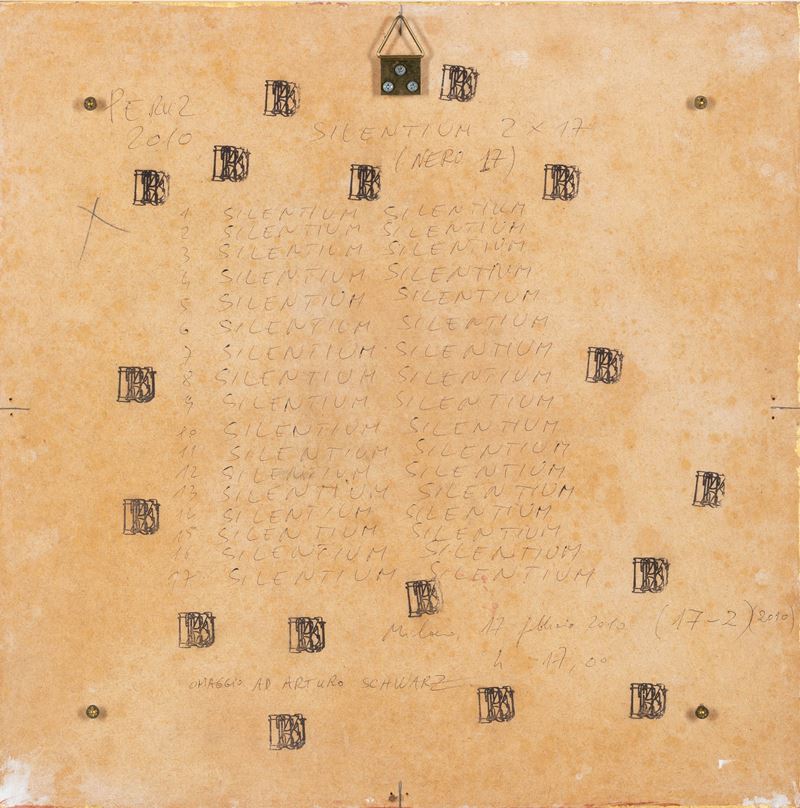 PERUZ
2010
SILENTIUM 2 × 17
(NERO 17)
1 SILENTIUM SILENTIUM
2 SILENTIUM SILENTIUM
3 SILENTIUM SILENTIUM
4 SILENTIUM SILENTIUM
5 SILENTIUM SILENTIUM
6 SILENTIUM SILENTIUM
7 SILENTIUM SILENTIUM
8 SILENTIUM SILENTIUM
9 SILENTIUM SILENTIUM
10 SILENTIUM SILENTIUM
11 SILENTIUM SILENTIUM
12 SILENTIUM SILENTIUM
13 SILENTIUM SILENTIUM
14 SILENTIUM SILENTIUM
15 SILENTIUM SILENTIUM
16 SILENTIUM SILENTIUM
17 SILENTIUM SILENTIUM
Milano, 17 febbraio 2010 (17-2)(2010)
h - 17,00
OMAGGIO AD ARTURO SCHWARZ